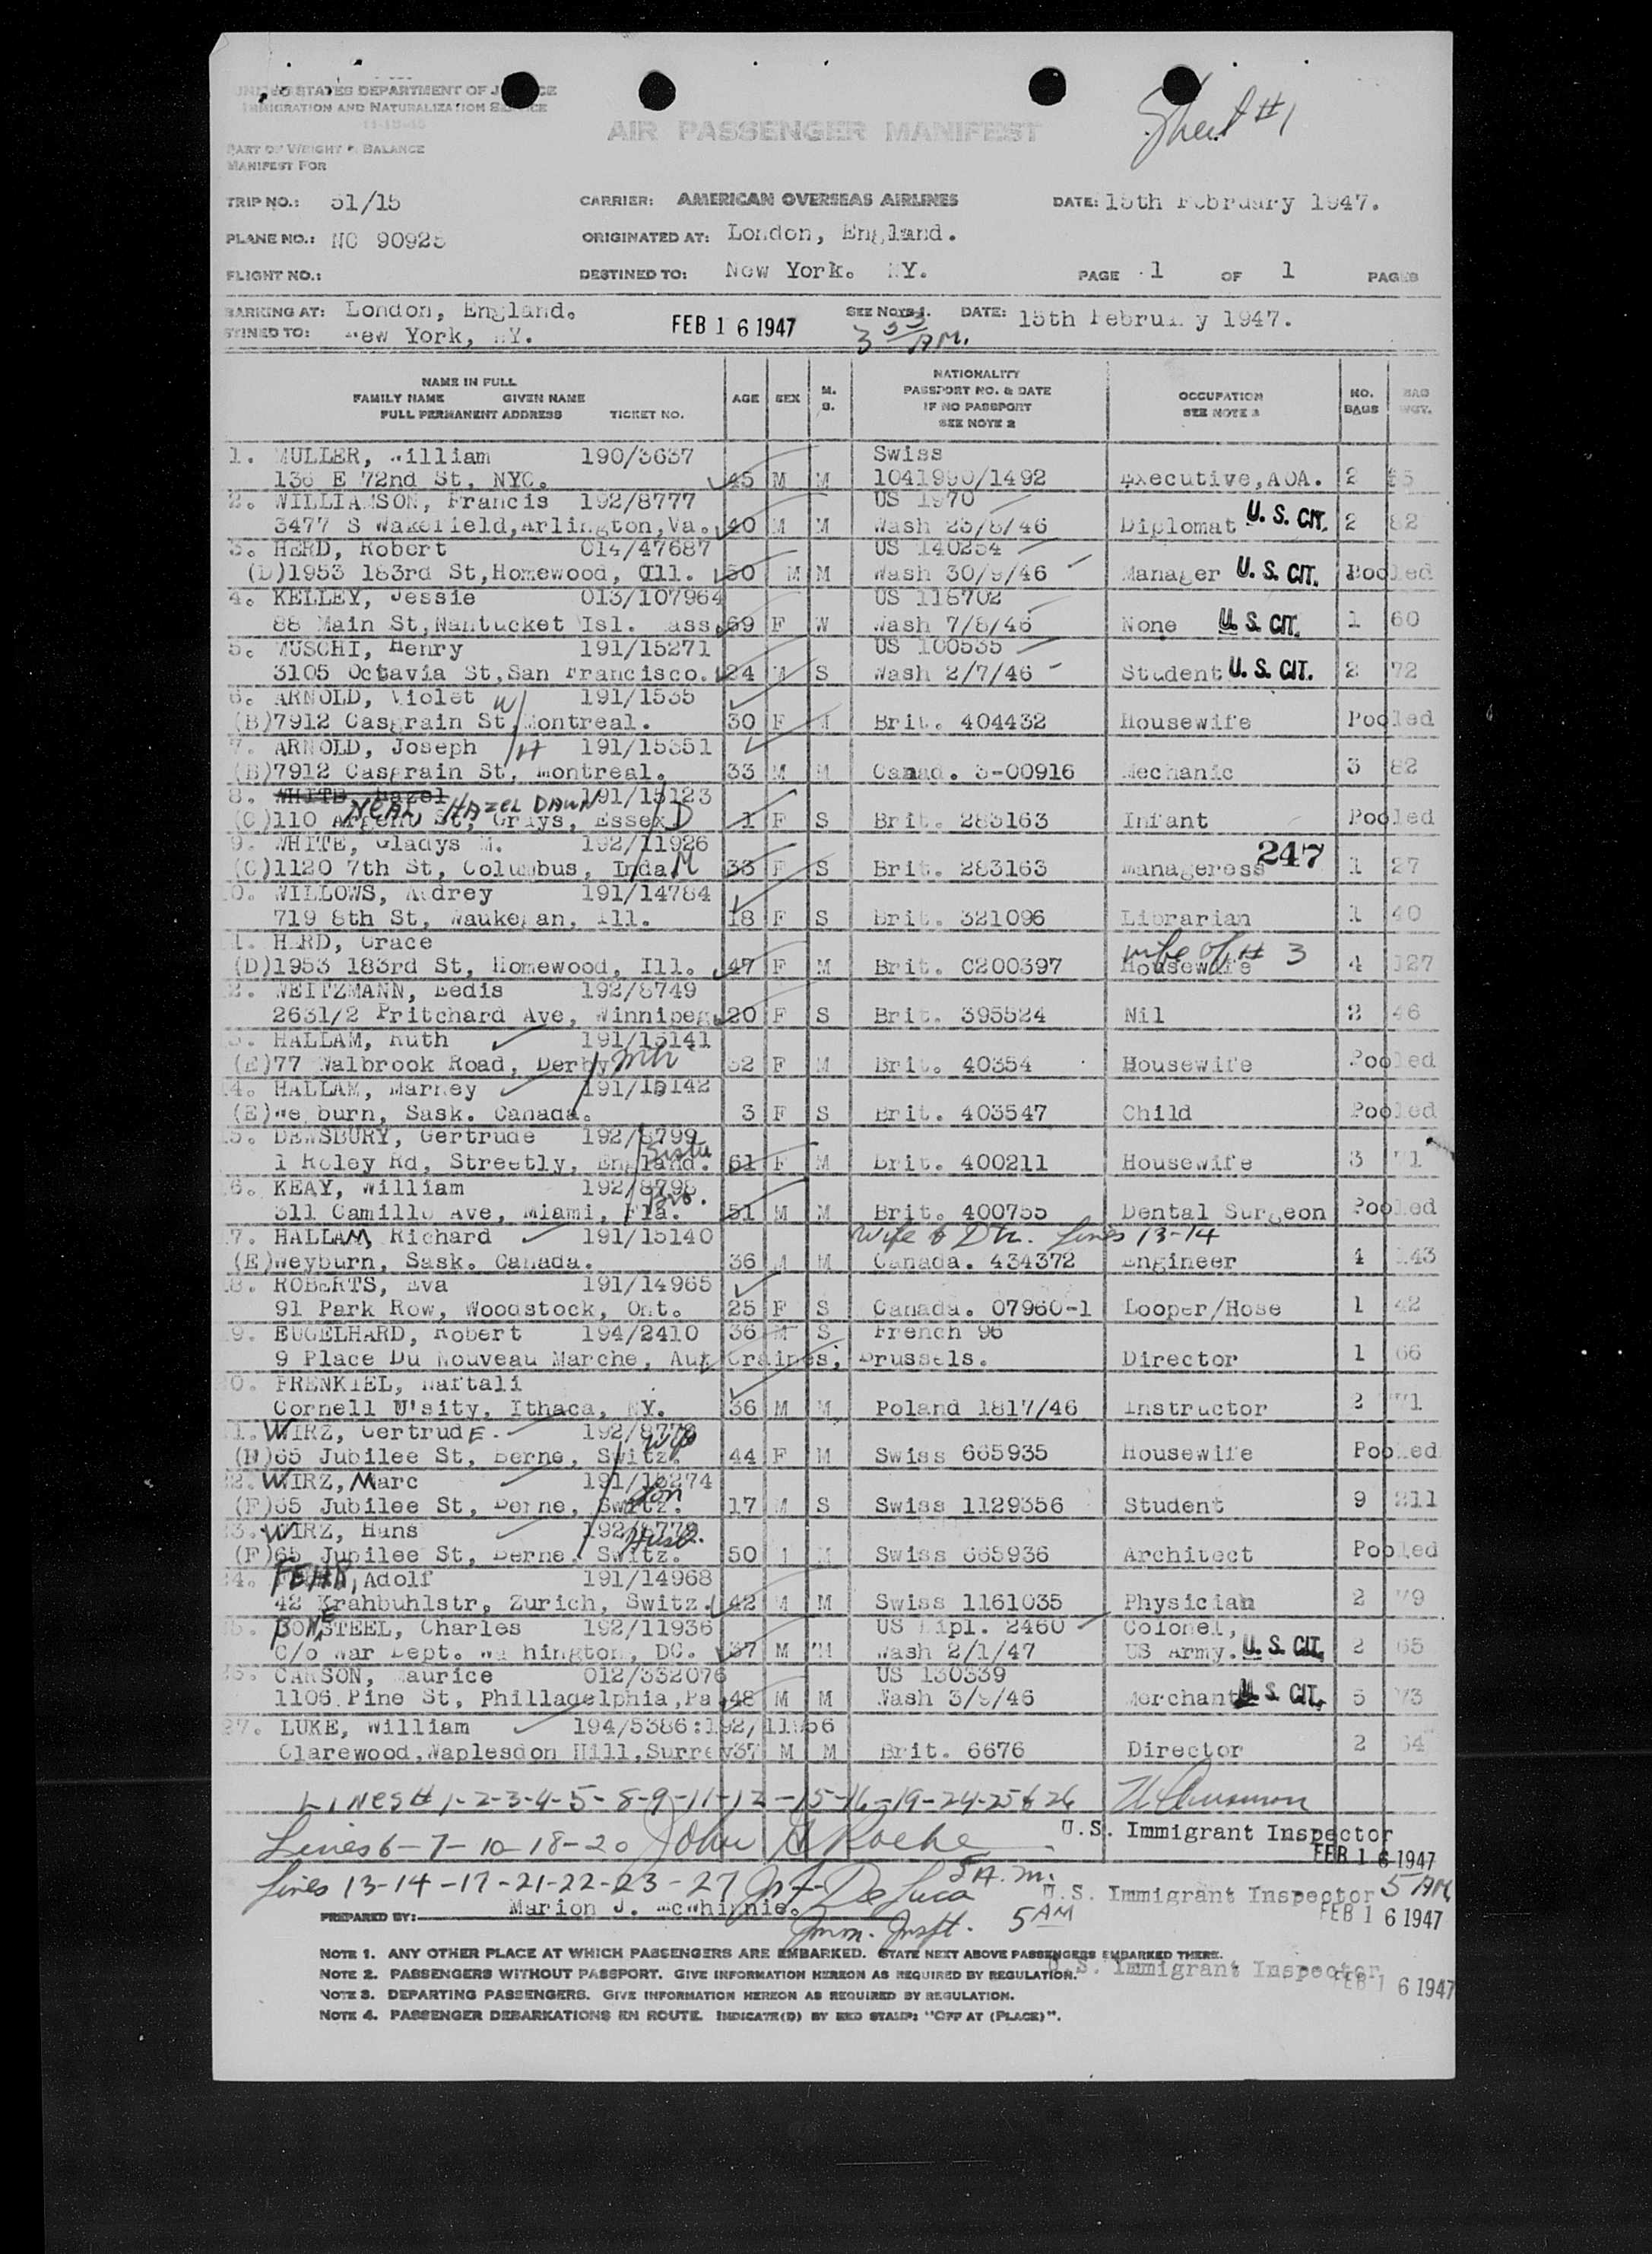 UNITED STATES DEPARTMENT OF JUSTICE
IMMIGRATION AND NATURALIZATION SERVICE
Sheet #1
AIR PASSENGER MANIFEST
PART OF WEIGHT & BALANCE
MANIFEST FOR
TRIP NO.: 51/15 CARRIER: AMERICAN OVERSEAS AIRLINES DATE: 15th February 1947.
PLANE NO.: NC 90925 ORIGINATED AT: London, England.
FLIGHT NO.: DESTINED TO: New York. NY. PAGE 1 OF 1 PAGES
BARKING AT: London, England. SEE NOTE 1. DATE: 15th February 1947.
STINED TO: New York, NY. FEB 16 1947 3 53 AM.
NAME IN FULL
FAMILY NAME GIVEN NAME
FULL PERMANENT ADDRESS TICKET NO. AGE SEX M. S. NATIONALITY PASSPORT NO. & DATE IF NO PASSPORT SEE NOTE 2 OCCUPATION SEE NOTE 3 NO. BAGS BAG WGT.
1. MULLER, William 190/3637 Swiss
136 E 72nd St, NYC. 45 M M 1041990/1492 Executive, AOA. 2
2. WILLIAMSON, Francis 192/8777 US 1970
3477 S Wakefield, Arlington, Va. 40 M M Wash 23/8/46 Diplomat U. S. CIT. 2 82
3. HERD, Robert 014/47687 US 140254
(D)1953 183rd St, Homewood, Ill. 50 M M Wash 30/9/46 Manager U. S. CIT. Pooled
4. KELLEY, Jessie 013/107964 US 118702
88 Main St, Nantucket Isl. Mass 69 F W Wash 7/8/46 None U. S. CIT. 1 60
5. MUSCHI, Henry 191/15271 US 100535
3105 Octavia St, San Francisco. 24 M S Wash 2/7/46 Student U. S. CIT. 2 72
6. ARNOLD, Violet W 191/1535
(B)7912 Casgrain St, Montreal. 30 F M Brit. 404432 Housewife Pooled
7. ARNOLD, Joseph H 191/15351
(B)7912 Casgrain St, Montreal. 33 M M Canad. 3-00916 Mechanic 3 82
8. WHITE, Hazel 191/15123
NEAL HAZEL DAWN
(C)110 Argent St, Grays, Essex. D 1 F S Brit. 283163 Infant Pooled
9. WHITE, Gladys M. 192/11926
(C)1120 7th St, Columbus, Inda M 33 F S Brit. 283163 Manageress 247 1 27
0. WILLOWS, Audrey 191/14784
719 8th St, Waukegan, Ill. 18 F S Brit. 321096 Librarian 1 40
1. HERD, Grace
(D)1953 183rd St, Homewood, Ill. 47 F M Brit. C200397 Housewife wife of # 3 4 127
2. WEITZMANN, Ledis 192/8749
2631/2 Pritchard Ave, Winnipeg 20 F S Brit. 395524 Nil 2 46
3. HALLAM, Ruth 191/15141
(E)77 Walbrook Road, Derby 32 F M Brit. 40354 Housewife Pooled
4. HALLAM, Marney 191/15142
(E)We burn, Sask. Canada. 3 F S Brit. 403547 Child Pooled
5. DEWSBURY, Gertrude 192/8799
1 Roley Rd, Streetly, England. Sister 61 F M Brit. 400211 Housewife 3 71
6. KEAY, William 192/8798
311 Camillo Ave, Miami, Fla. Bro. 51 M M Brit. 400755 Dental Surgeon Pooled
7. HALLAM, Richard 191/15140 Wife & Dtr. Lines 13-14
(E)Weyburn, Sask. Canada. 36 M M Canada. 434372 Engineer 4 143
8. ROBERTS, Eva 191/14965
91 Park Row, Woodstock, Ont. 25 F S Canada. 07960-1 Looper/Hose 1 42
9. EUGELHARD, Robert 194/2410 36 M S French 96
9 Place Du Nouveau Marche, Aux Graines, Brussels. Director 1 66
0. FRENKIEL, Naftali
Cornell U'sity, Ithaca, NY. 36 M M Poland 1817/46 Instructor 2 71
1. WIRZ, Gertrude. 192/8778
(F)65 Jubilee St, Berne, Switz. Wife 44 F M Swiss 665935 Housewife Pooled
2. WIRZ, Marc 191/15274
(F)65 Jubilee St, Berne, Switz. Son 17 M S Swiss 1129356 Student 9 211
3. WIRZ, Hans 192/8779
(F)65 Jubilee St, Berne. Switz. Husb. 50 M M Swiss 665936 Architect Pooled
4. FEHR, Adolf 191/14968
42 Krahbuhlstr, Zurich, Switz. 42 M M Swiss 1161035 Physician 2 79
5. BONESTEEL, Charles 192/11936 US Dipl. 2460 Colonel,
C/o War Dept. Washington, DC. 37 M M Wash 2/1/47 US Army. U. S. CIT. 2 65
6. CARSON, Maurice 012/332076 US 130339
1106 Pine St, Philladelphia, Pa 48 M M Wash 3/9/46 Merchant U. S. CIT. 5 73
27. LUKE, William 194/5386:192/11956
Clarewood, Maplesdon Hill, Surrey 37 M M Brit. 6676 Director 2 54
LINES # 1-2-3-4-5-8-9-11-12-15-16-19-24-25 & 26
U.S. Immigrant Inspector
FEB 16 1947
Lines 6-7-10-18-20 John A Roche
5 A.M.
Lines 13-14-17-21-22-23-27 De Luca U.S. Immigrant Inspector 5 AM
FEB 16 1947
PREPARED BY: Marion J. McWhinnie.
Imm. Inspt. 5 AM
NOTE 1. ANY OTHER PLACE AT WHICH PASSENGERS ARE EMBARKED. STATE NEXT ABOVE PASSENGERS EMBARKED THERE.
NOTE 2. PASSENGERS WITHOUT PASSPORT. GIVE INFORMATION HEREON AS REQUIRED BY REGULATION.
U.S. Immigrant Inspector
FEB 16 1947
NOTE 3. DEPARTING PASSENGERS. GIVE INFORMATION HEREON AS REQUIRED BY REGULATION.
NOTE 4. PASSENGER DEBARKATIONS EN ROUTE. INDICATE(D) BY RED STAMP: "OFF AT (PLACE)".